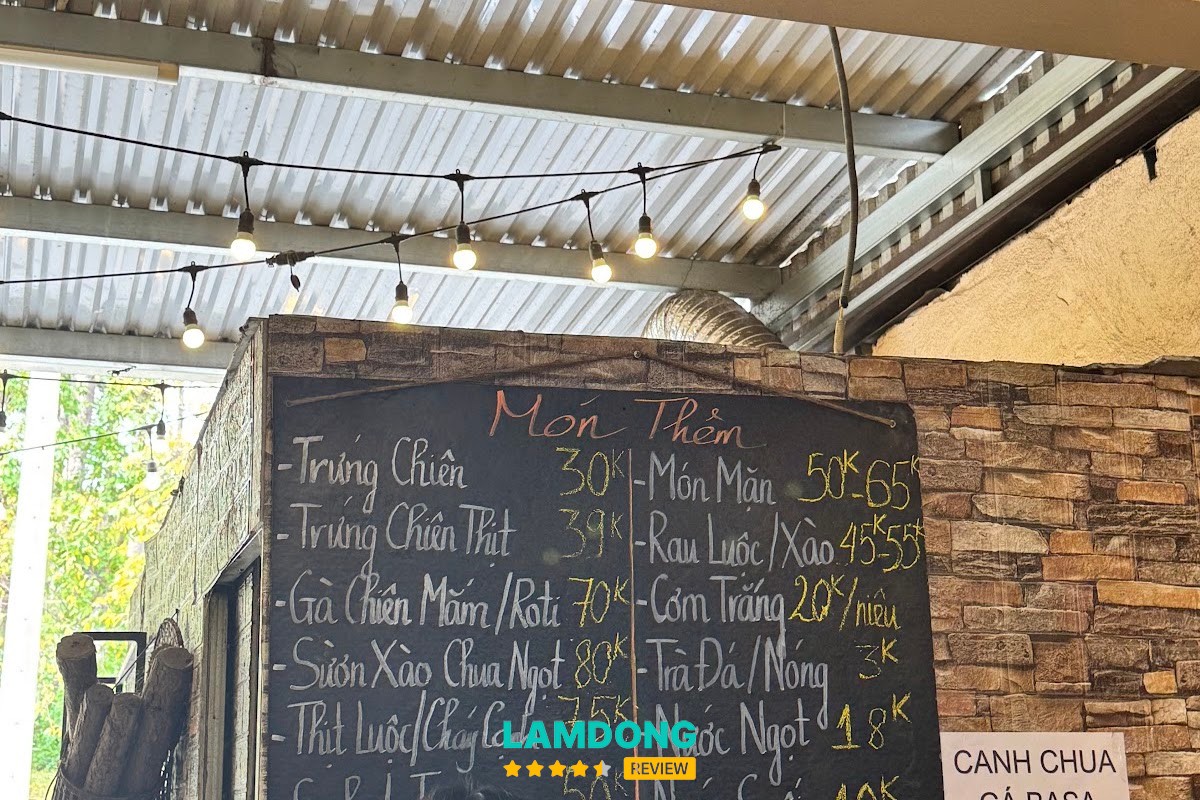 Món Thêm
-Trứng Chiên 30K
-Trứng Chiên Thịt 39K
-Gà Chiên Mắm/Rôti 70K
-Sườn Xào Chua Ngọt 80K
-Thịt Luộc/Cháy Cạnh 75K
50K
-Món Mặn 50K-65K
-Rau Luộc/Xào 45K-55K
-Cơm Trắng 20K/niêu
-Trà Đá/Nóng 3K
-Nước Ngọt 18K
LAMDONG
REVIEW
CANH CHUA
CÁ BASA